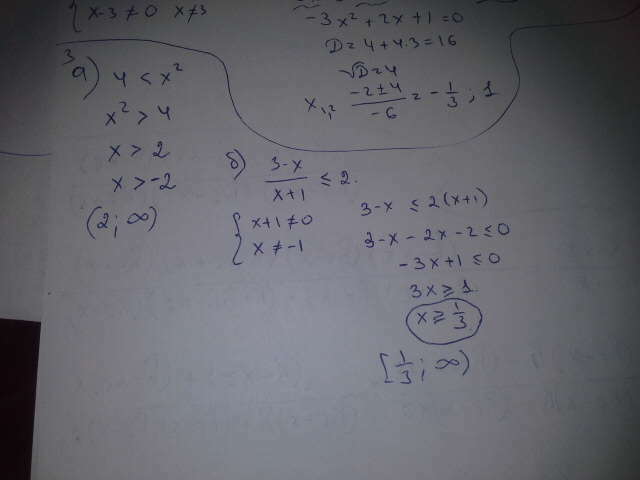 x-3≠0 x≠3
-3x²+2x+1=0
D=4+4·3=16
√D=4
x₁,₂ (-2±4)/(-6) = -1/3; 1
3
a) 4 < x²
x² > 4
x > 2
x > -2
(2; ∞)
б) (3-x)/(x+1) ≤ 2.
x+1≠0
x≠-1
3-x ≤ 2(x+1)
3-x-2x-2≤0
-3x+1≤0
3x≥1
x≥1/3
[1/3; ∞)